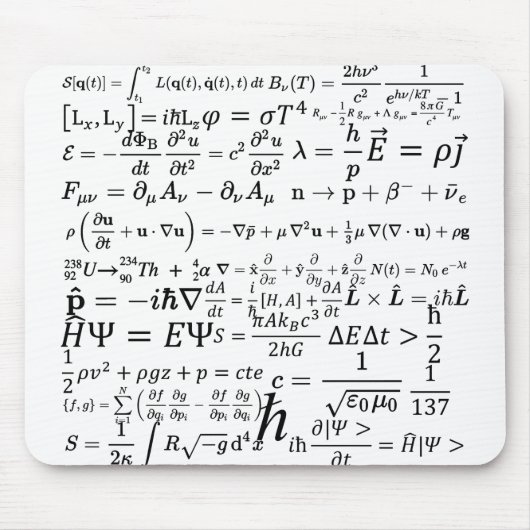 𝒮[𝐪(t)] = ∫_{t₁}^{t₂} L(𝐪(t), 𝐪̇(t), t) dt B_ν(T) = \frac{2hν³}{c²} \frac{1}{e^{hν/kT} − 1}
[L_x, L_y] = iħL_z φ = σT⁴ R_{μν} − \frac{1}{2}R g_{μν} + Λ g_{μν} = \frac{8πG}{c⁴} T_{μν}
ℰ = −\frac{dΦ_B}{dt} \frac{∂²u}{∂t²} = c² \frac{∂²u}{∂x²} λ = \frac{h}{p} \vec{E} = ρ\vec{j}
F_{μν} = ∂_μ A_ν − ∂_ν A_μ n → p + β⁻ + ν̄_e
ρ(\frac{∂𝐮}{∂t} + 𝐮 · ∇𝐮) = −∇p̄ + μ ∇²𝐮 + \frac{1}{3}μ ∇(∇ · 𝐮) + ρ𝐠
^{238}_{92}U→^{234}_{90}Th + ^{4}_{2}α ∇ = x̂\frac{∂}{∂x} + ŷ\frac{∂}{∂y} + ẑ\frac{∂}{∂z} N(t) = N₀ e^{−λt}
𝐩̂ = −iħ∇ \frac{dA}{dt} = \frac{i}{ħ}[H, A] + \frac{∂A}{∂t} L̂ × L̂ = iħL̂
ĤΨ = EΨ S = \frac{πAk_Bc³}{2hG} ΔEΔt > \frac{ħ}{2}
\frac{1}{2}ρv² + ρgz + p = cte c = \frac{1}{\sqrt{ε₀μ₀}} \frac{1}{137}
{f, g} = ∑_{i=1}^{N} (\frac{∂f}{∂q_i} \frac{∂g}{∂p_i} − \frac{∂f}{∂p_i} \frac{∂g}{∂q_i}) ħ
S = \frac{1}{2κ} ∫ R\sqrt{−g} d⁴x iħ\frac{∂|Ψ >}{∂t} = Ĥ|Ψ >